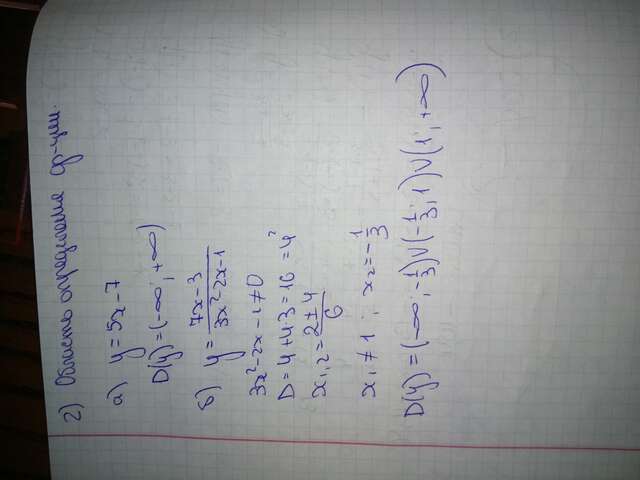 2) Область определения ф-ции.
а) y = 5x - 7
D(y) = (-∞ ; +∞)
б) y = \frac{7x-3}{3x²-2x-1}
3x² - 2x - 1 ≠ 0
D = 4 + 4·3 = 16 = 4²
x₁,₂ = \frac{2±4}{6}
x₁ ≠ 1 ; x₂ = -\frac{1}{3}
D(y) = (-∞ ; -\frac{1}{3}) ∪ (-\frac{1}{3} ; 1) ∪ (1 ; +∞)